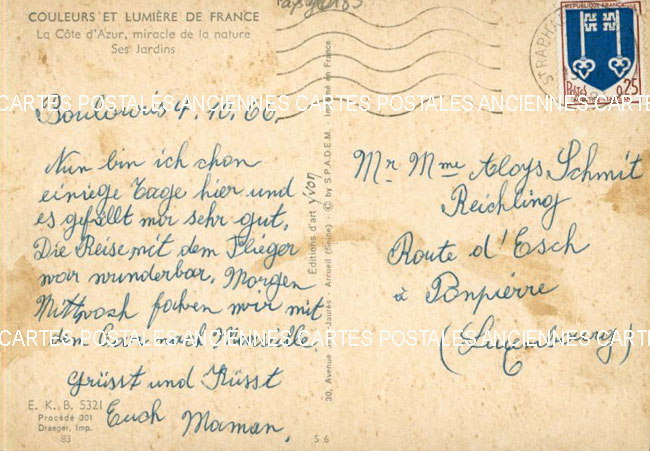 COULEURS ET LUMIÈRE DE FRANCE
La Côte d'Azur, miracle de la nature
Ses Jardins
RÉPUBLIQUE FRANÇAISE
Postes 0,25
ST RAPHA
Boulouris 4.10.66.
CARTES POSTALES ANCIENNES CARTES POSTALES ANCIENNES CARTE
Nun bin ich schon
einiege Tage hier und
es gefällt mir sehr gut.
Die Reise mit dem Flieger
war wunderbar. Morgen
Mittwoch fahren wir mit
den nach
CARTES POSTALES ANCIENNES CARTES POSTALES ANCIENNES CARTES
Grüsst und Küsst
Euch Maman.
E. K. B. 5321
Procédé 301
Draeger, Imp.
83
56
Éditions d'art yvon
30, Avenue Jean-Jaurès - Arcueil (Seine) © by S.P.A.D.E.M. Imprimé en France
Mr Mme Aloys Schmit
Reichling
Route d'Esch
à Ponpierre
(Luxembourg)